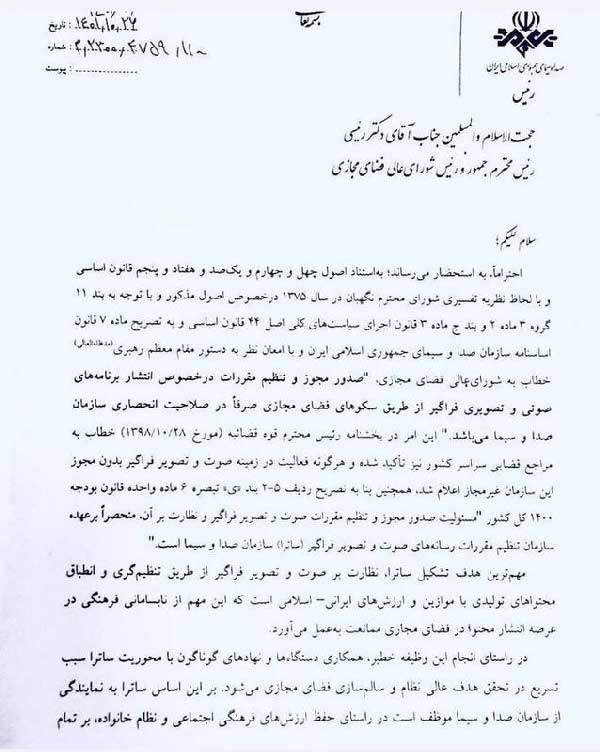 بسمه تعالی
تاریخ : ۱۴۰۱,۱۰,۲۴
شماره :
پیوست : ...............
صدا و سیمای جمهوری اسلامی ایران
رئیس
حجت الاسلام والمسلمین جناب آقای دکتر رئیسی
رئیس محترم جمهور و رئیس شورای عالی فضای مجازی
سلام علیکم؛
احتراماً، به استحضار می‌رساند؛ به‌استناد اصول چهل و چهارم و یک‌صد و هفتاد و پنجم قانون اساسی
و با لحاظ نظریه تفسیری شورای محترم نگهبان در سال ۱۳۷۵ درخصوص اصول مذکور و با توجه به بند ۱۱
گروه ۳ ماده ۲ و بند ج ماده ۳ قانون اجرای سیاست‌های کلی اصل ۴۴ قانون اساسی و به تصریح ماده ۷ قانون
اساسنامه سازمان صدا و سیمای جمهوری اسلامی ایرن و با امعان نظر به دستور مقام معظم رهبری(مدظله‌العالی)
خطاب به شورای‌عالی فضای مجازی، "صدور مجوز و تنظیم مقررات درخصوص انتشار برنامه‌های
صوتی و تصویری فراگیر از طریق سکوهای فضای مجازی صرفاً در صلاحیت انحصاری سازمان
صدا و سیما می‌باشد." این امر در بخشنامه رئیس محترم قوه قضائیه (مورخ ۱۳۹۸/۱۰/۲۸) خطاب به
مراجع قضایی سراسر کشور نیز تأکید شده و هرگونه فعالیت در زمینه صوت و تصویر فراگیر بدون مجوز
این سازمان غیرمجاز اعلام شد، همچنین بنا به تصریح ردیف ۵-۲ بند «ی» تبصره ۶ ماده واحده قانون بودجه
۱۴۰۰ کل کشور "مسئولیت صدور مجوز و تنظیم مقررات صوت و تصویر فراگیر و نظارت بر آن، منحصراً برعهده
سازمان تنظیم مقررات رسانه‌های صوت و تصویر فراگیر (ساترا) سازمان صدا و سیما است."
مهم‌ترین هدف تشکیل ساترا، نظارت بر صوت و تصویر فراگیر از طریق تنظیم‌گری و انطباق
محتواهای تولیدی با موازین و ارزش‌های ایرانی– اسلامی است که این مهم از نابسامانی فرهنگی در
عرصه انتشار محتوا در فضای مجازی ممانعت به‌عمل می‌آورد.
در راستای انجام این وظیفه خطیر، همکاری دستگاه‌ها و نهادهای گوناگون با محوریت ساترا سبب
تسریع در تحقق هدف عالی نظام و سالم‌سازی فضای مجازی می‌شود. بر این اساس ساترا به نمایندگی
از سازمان صدا و سیما موظف است در راستای حفظ ارزش‌های فرهنگی اجتماعی و نظام خانواده، بر تمام